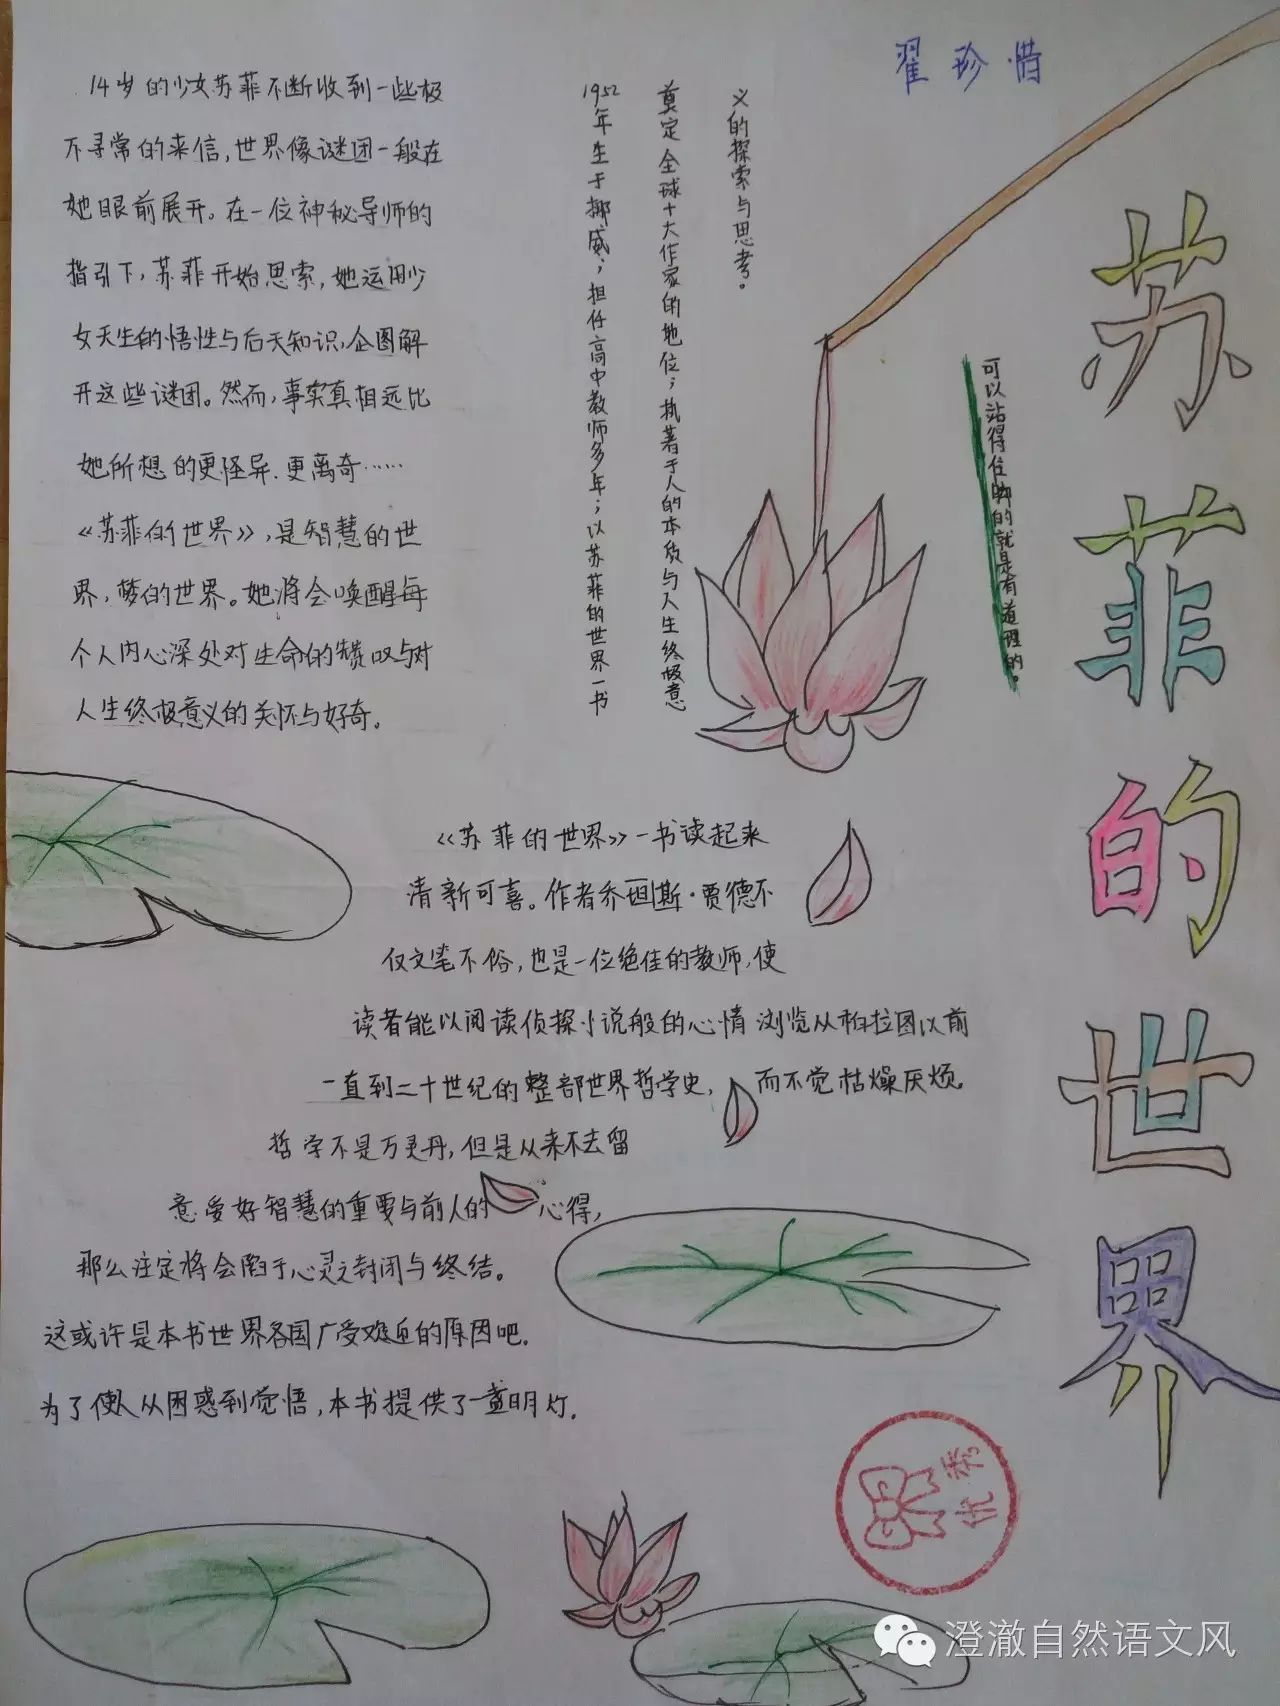 翟珍惜
苏菲的世界
14岁的少女苏菲不断收到一些极
不寻常的来信,世界像谜团一般在
她眼前展开。在一位神秘导师的
指引下,苏菲开始思索,她运用少
女天生的悟性与后天知识,企图解
开这些谜团。然而,事实真相远比
她所想的更怪异.更离奇……
《苏菲的世界》,是智慧的世
界,梦的世界。她将会唤醒每
个人内心深处对生命的赞叹与对
人生终极意义的关怀与好奇。
1952年生于挪威;担任高中教师多年;以苏菲的世界一书
奠定全球十大作家的地位;执著于人的本质与人生终极意
义的探索与思考。
可以站得住脚的就是有道理的。
《苏菲的世界》一书读起来
清新可喜。作者乔坦斯·贾德不
仅文笔不俗,也是一位绝佳的教师,使
读者能以阅读侦探小说般的心情浏览从柏拉图以前
一直到二十世纪的整部世界哲学史,而不觉枯燥厌烦.
哲学不是万灵丹,但是从来不去留
意爱好智慧的重要与前人的心得,
那么注定将会陷于心灵之封闭与终结。
这或许是本书世界各国广受欢迎的原因吧.
为了使人从困惑到觉悟,本书提供了一盏明灯.
优秀
澄澈自然语文风